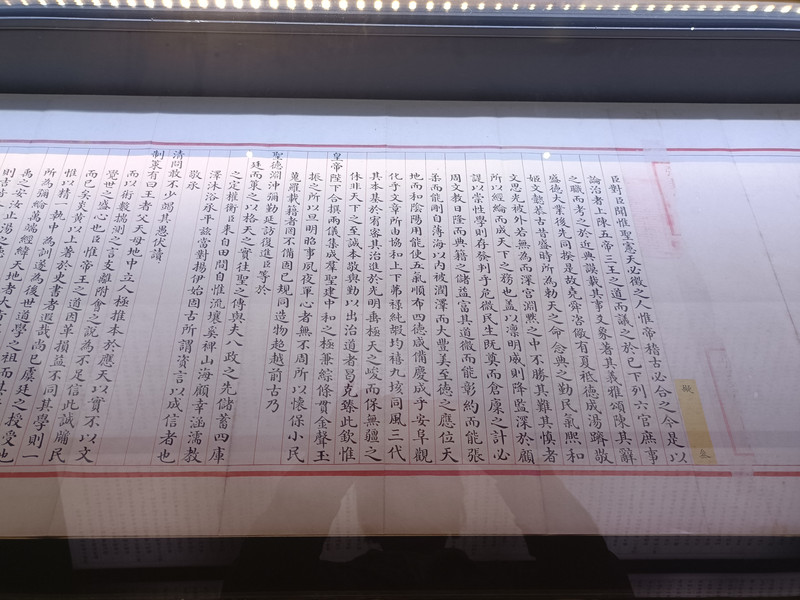 擬
臣對臣聞惟聖憲天必徵之人惟帝稽古必合之今是以
論治者上陳五帝三王之道而議之於已下列六官庶事
之職而考之於近典謨載其事爻象著其義雅頌陳其辭
盛德大業後先同揆是故堯資咨儆有夏祗德成湯躋敬
姬文懿恭古昔盛時所為勅天之命念典之勤民氣熙和
文思光被外若無為而深宮淵默之中不勝其難其慎者
所以經綸而成天下之務也蓋以凜明威則降監深於顧
諟以崇性學則存發判乎危微民生既奠而倉廩之計必
周文教日隆而典籍之儲益富其道微而能彰約而能張
柔而能剛自薄海以內被潤澤而大豐美至德之應位天
地而和陰陽用能使五氣順布四德咸備慶成乎安阜觀
化乎文章所由協和上下茀祿純嘏均禧九垓同風三代
其本基於宥密其治進於光明垂極天之峻而保無疆之
休非天下之至誠本敬與勤以出治道者曷克臻此欽惟
皇帝陛下合撰兩儀集成羣聖建中和之極兼綜條貫金聲玉
振之所以旦明昭事夙夜單心者無不周所以懷保小民
蒐羅載籍者罔不備固已規同造物超越前古乃
聖德淵沖彌勤延訪復進臣等於
廷而策之以格天之實往聖之傳與夫八政之先儲蓄四庫
之定權衡臣來自田間自惟流壤奚裨山海顧幸涵濡教
澤沐浴永平茲當對揚伊始固古所謂資言以成信者也
敬承
清問敢不少竭其愚伏讀
制策有曰王者父天母地中立人極推本於應天以實不以文
而以術數揣測之言支離附會之說為不足信此誠牖民
覺世之盛心也臣惟帝王之道因革損益不同其學則一
而已矣炎黃以上著於史書者遐哉尚已虞廷之授受也
惟以精一執中為訓遂為後世道學之祖而其
所為彌綸萬端經緯天地者大
禹之安汝止湯之